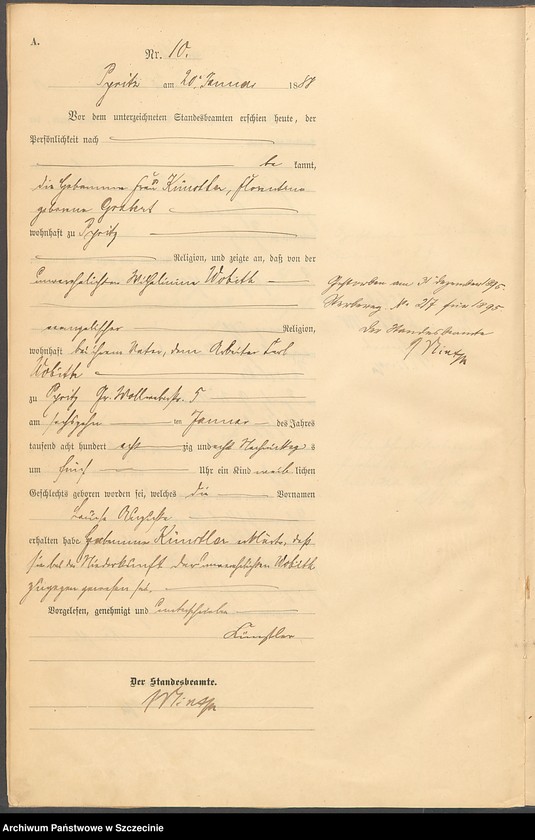 A.
Nr. 10.
Pyritz am 20. Januar 1888
Vor dem unterzeichneten Standesbeamten erschien heute, der
Persönlichkeit nach
be kannt,
die Hebamme Frau Künstler, Florentine
geborene Grabert
wohnhaft zu Pyritz
Religion, und zeigte an, daß von der
unverehelichten Wilhelmine Wobith
evangelischer Religion,
wohnhaft bei ihrem Vater, dem Arbeiter Carl
Wobith
zu Pyritz Gr. Wollweberstr. 5
am sechszehn ten Januar des Jahres
tausend acht hundert acht zig und acht Nachmittags
um fünf Uhr ein Kind weib lichen
Geschlechts geboren worden sei, welches die Vornamen
Auguste
erhalten habe. Hebamme Künstler erklärte, daß
sie bei der Niederkunft der unverehelichten Wobith
zugegen gewesen sei.
Vorgelesen, genehmigt und unterschrieben
Künstler
Der Standesbeamte.
Gestorben am 31 Dezember 1895
Sterbereg. No 217 für 1895
Der Standesbeamte
Archiwum Państwowe w Szczecinie